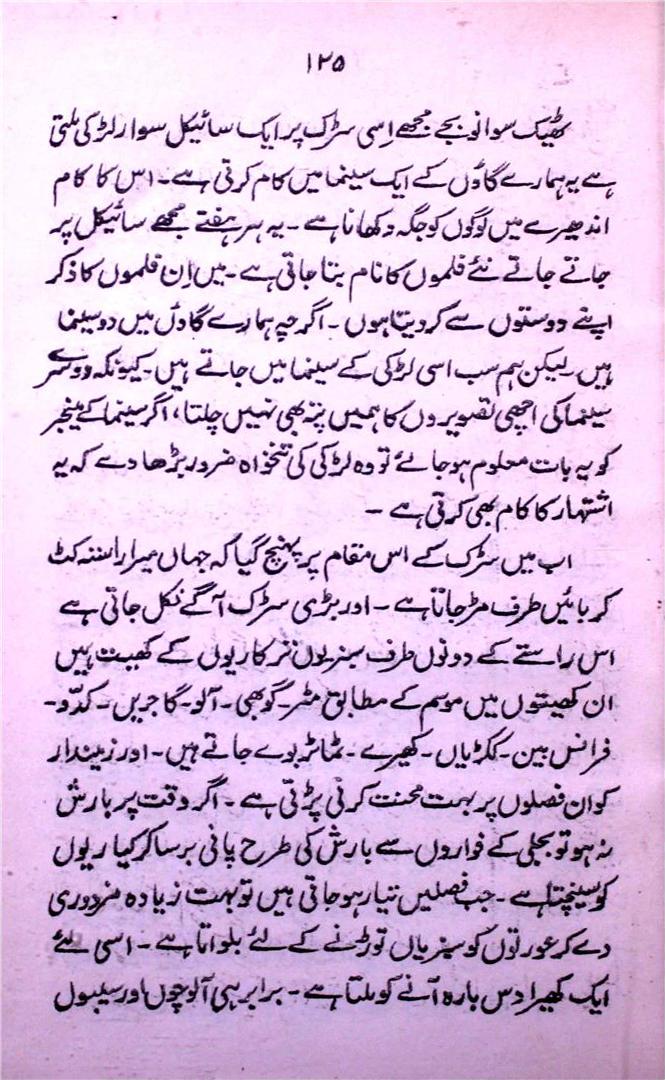 ۱۲۵
ٹھیک سوا نو بجے مجھے اِسی سڑک پر ایک سائیکل سوار لڑکی ملتی
ہے یہ ہمارے گاؤں کے ایک سینما میں کام کرتی ہے۔ اس کا کام
اندھیرے میں لوگوں کو جگہ دکھانا ہے۔ یہ ہر ہفتے مجھے سائیکل پر
جاتے جاتے نئے فلموں کا نام بتا جاتی ہے۔ میں اِن فلموں کا ذکر
اپنے دوستوں سے کر دیتا ہوں۔ اگرچہ ہمارے گاؤں میں دو سینما
ہیں۔ لیکن ہم سب اسی لڑکی کے سینما میں جاتے ہیں۔ کیونکہ دوسرے
سینما کی اچھی تصویروں کا ہمیں پتہ بھی نہیں چلتا، اگر سینما کے منیجر
کو یہ بات معلوم ہو جائے تو وہ لڑکی کی تنخواہ ضرور بڑھا دے کہ یہ
اشتہار کا کام بھی کرتی ہے۔
اب میں سڑک کے اس مقام پر پہنچ گیا کہ جہاں میرا راستہ کٹ
کر بائیں طرف مڑ جاتا ہے۔ اور بڑی سڑک آگے نکل جاتی ہے
اس راستے کے دونوں طرف سبزیوں ترکاریوں کے کھیت ہیں
ان کھیتوں میں موسم کے مطابق مٹر۔ گوبھی۔ آلو۔ گاجریں۔ کدّو۔
فرانس بین۔ ککڑیاں۔ کھیرے۔ ٹماٹر بوے جاتے ہیں۔ اور زمیندار
کو ان فصلوں پر بہت محنت کرنی پڑتی ہے۔ اگر وقت پر بارش
نہ ہو تو بجلی کے فواروں سے بارش کی طرح پانی برسا کر کیاریوں
کو سینچتا ہے۔ جب فصلیں تیار ہو جاتی ہیں تو بہت زیادہ مزدوری
دے کر عورتوں کو سبزیاں توڑنے کے لئے بلواتا ہے۔ اسی لئے
ایک کھیرا دس بارہ آنے کو ملتا ہے۔ برابر ہی آلوچوں اور سیبوں